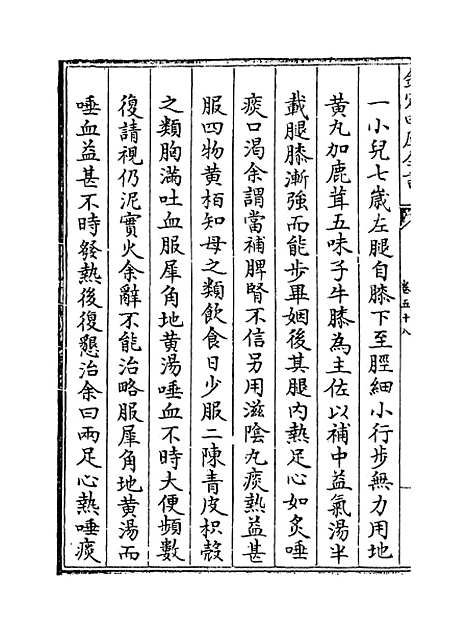 欽定四庫全書
卷五十八
一小兒七歲左腿自膝下至脛細小行步無力用地
黄丸加鹿茸五味子牛膝為主佐以補中益氣湯半
載腿膝漸強而能步畢姻後其腿内熱足心如炙唾
痰口渴余謂當補脾腎不信另用滋陰丸痰熱益甚
服四物黄栢知母之類飲食日少服二陳青皮枳殻
之類胸滿吐血服犀角地黄湯唾血不時大便頻數
復請視仍泥實火余辭不能治略服犀角地黄湯而
唾血益甚不時發熱後復懇治余曰兩足心熱唾痰